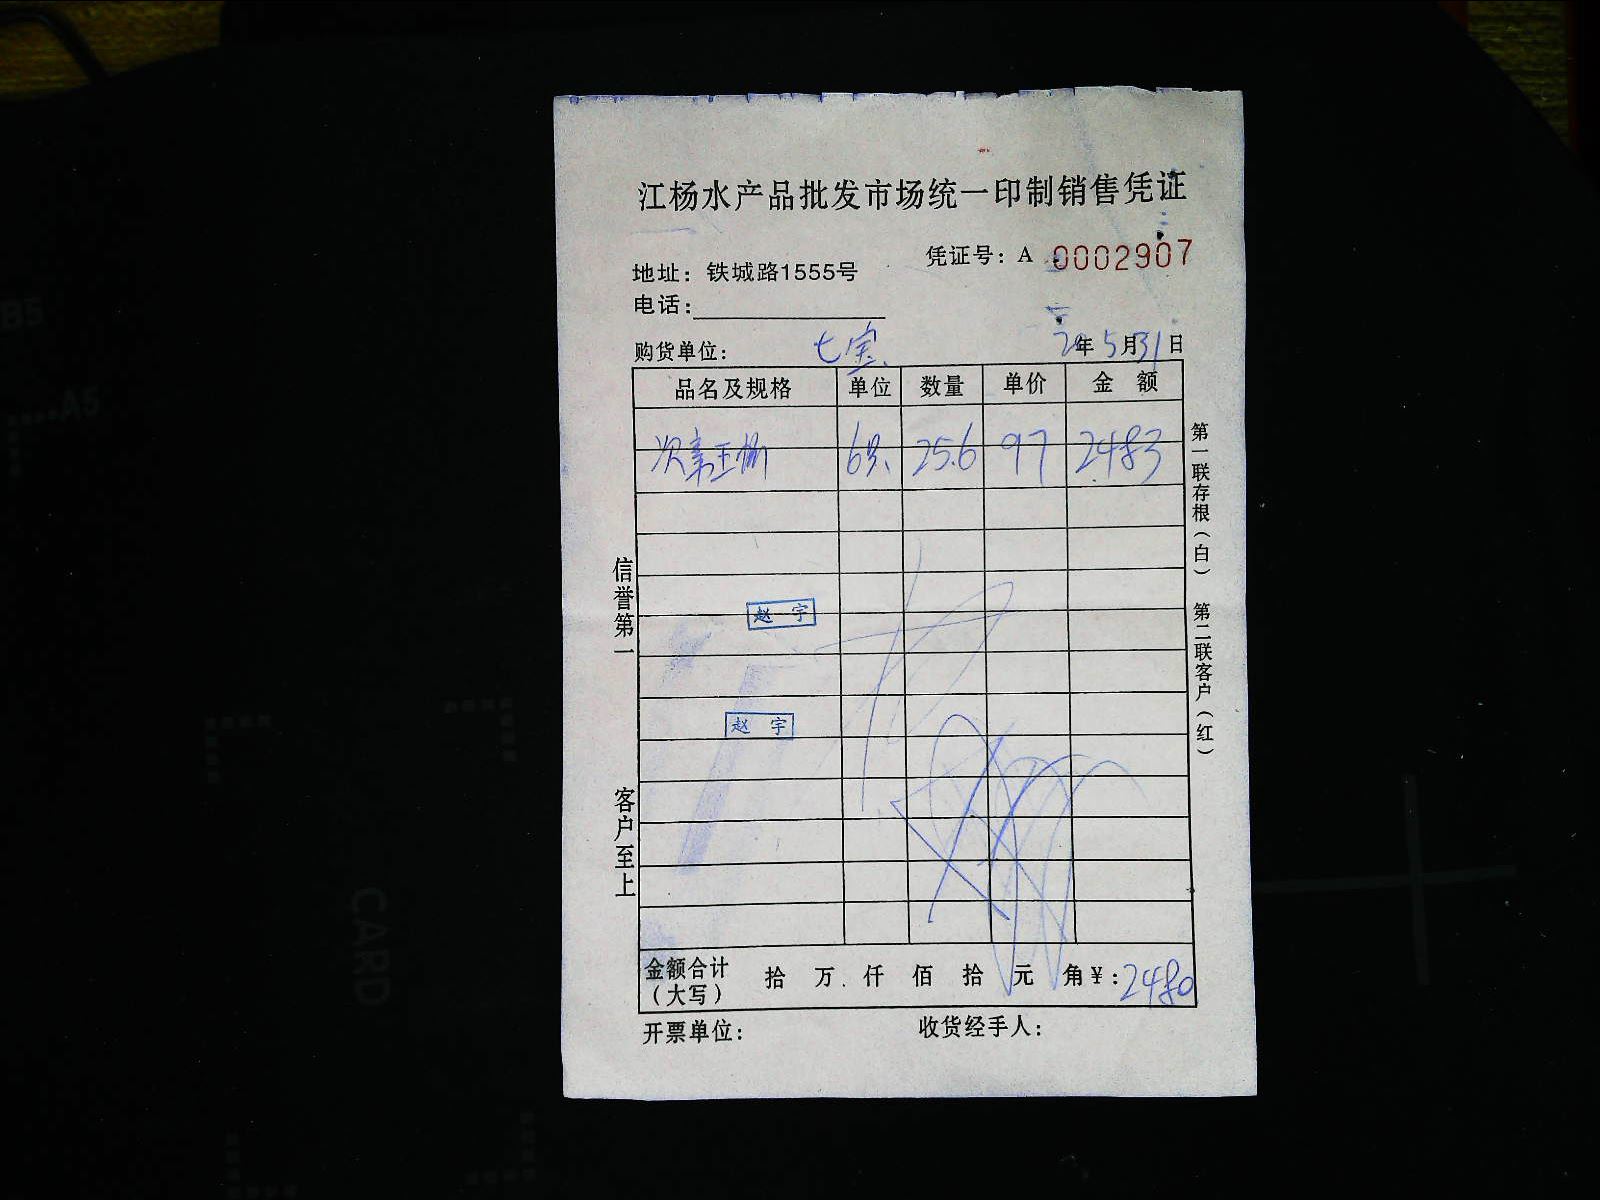 江杨水产品批发市场统一印制销售凭证
凭证号：A 0002907
地址：铁城路1555号
电话：
购货单位： 七宝 20年5月31日
品名及规格 单位 数量 单价 金 额
25.6 97 2483
赵 宇
赵 宇
金额合计（大写） 拾 万 仟 佰 拾 元 角 ¥：2480
开票单位： 收货经手人：
信誉第一 客户至上
第一联存根（白） 第二联客户（红）
B5
A5
CARD